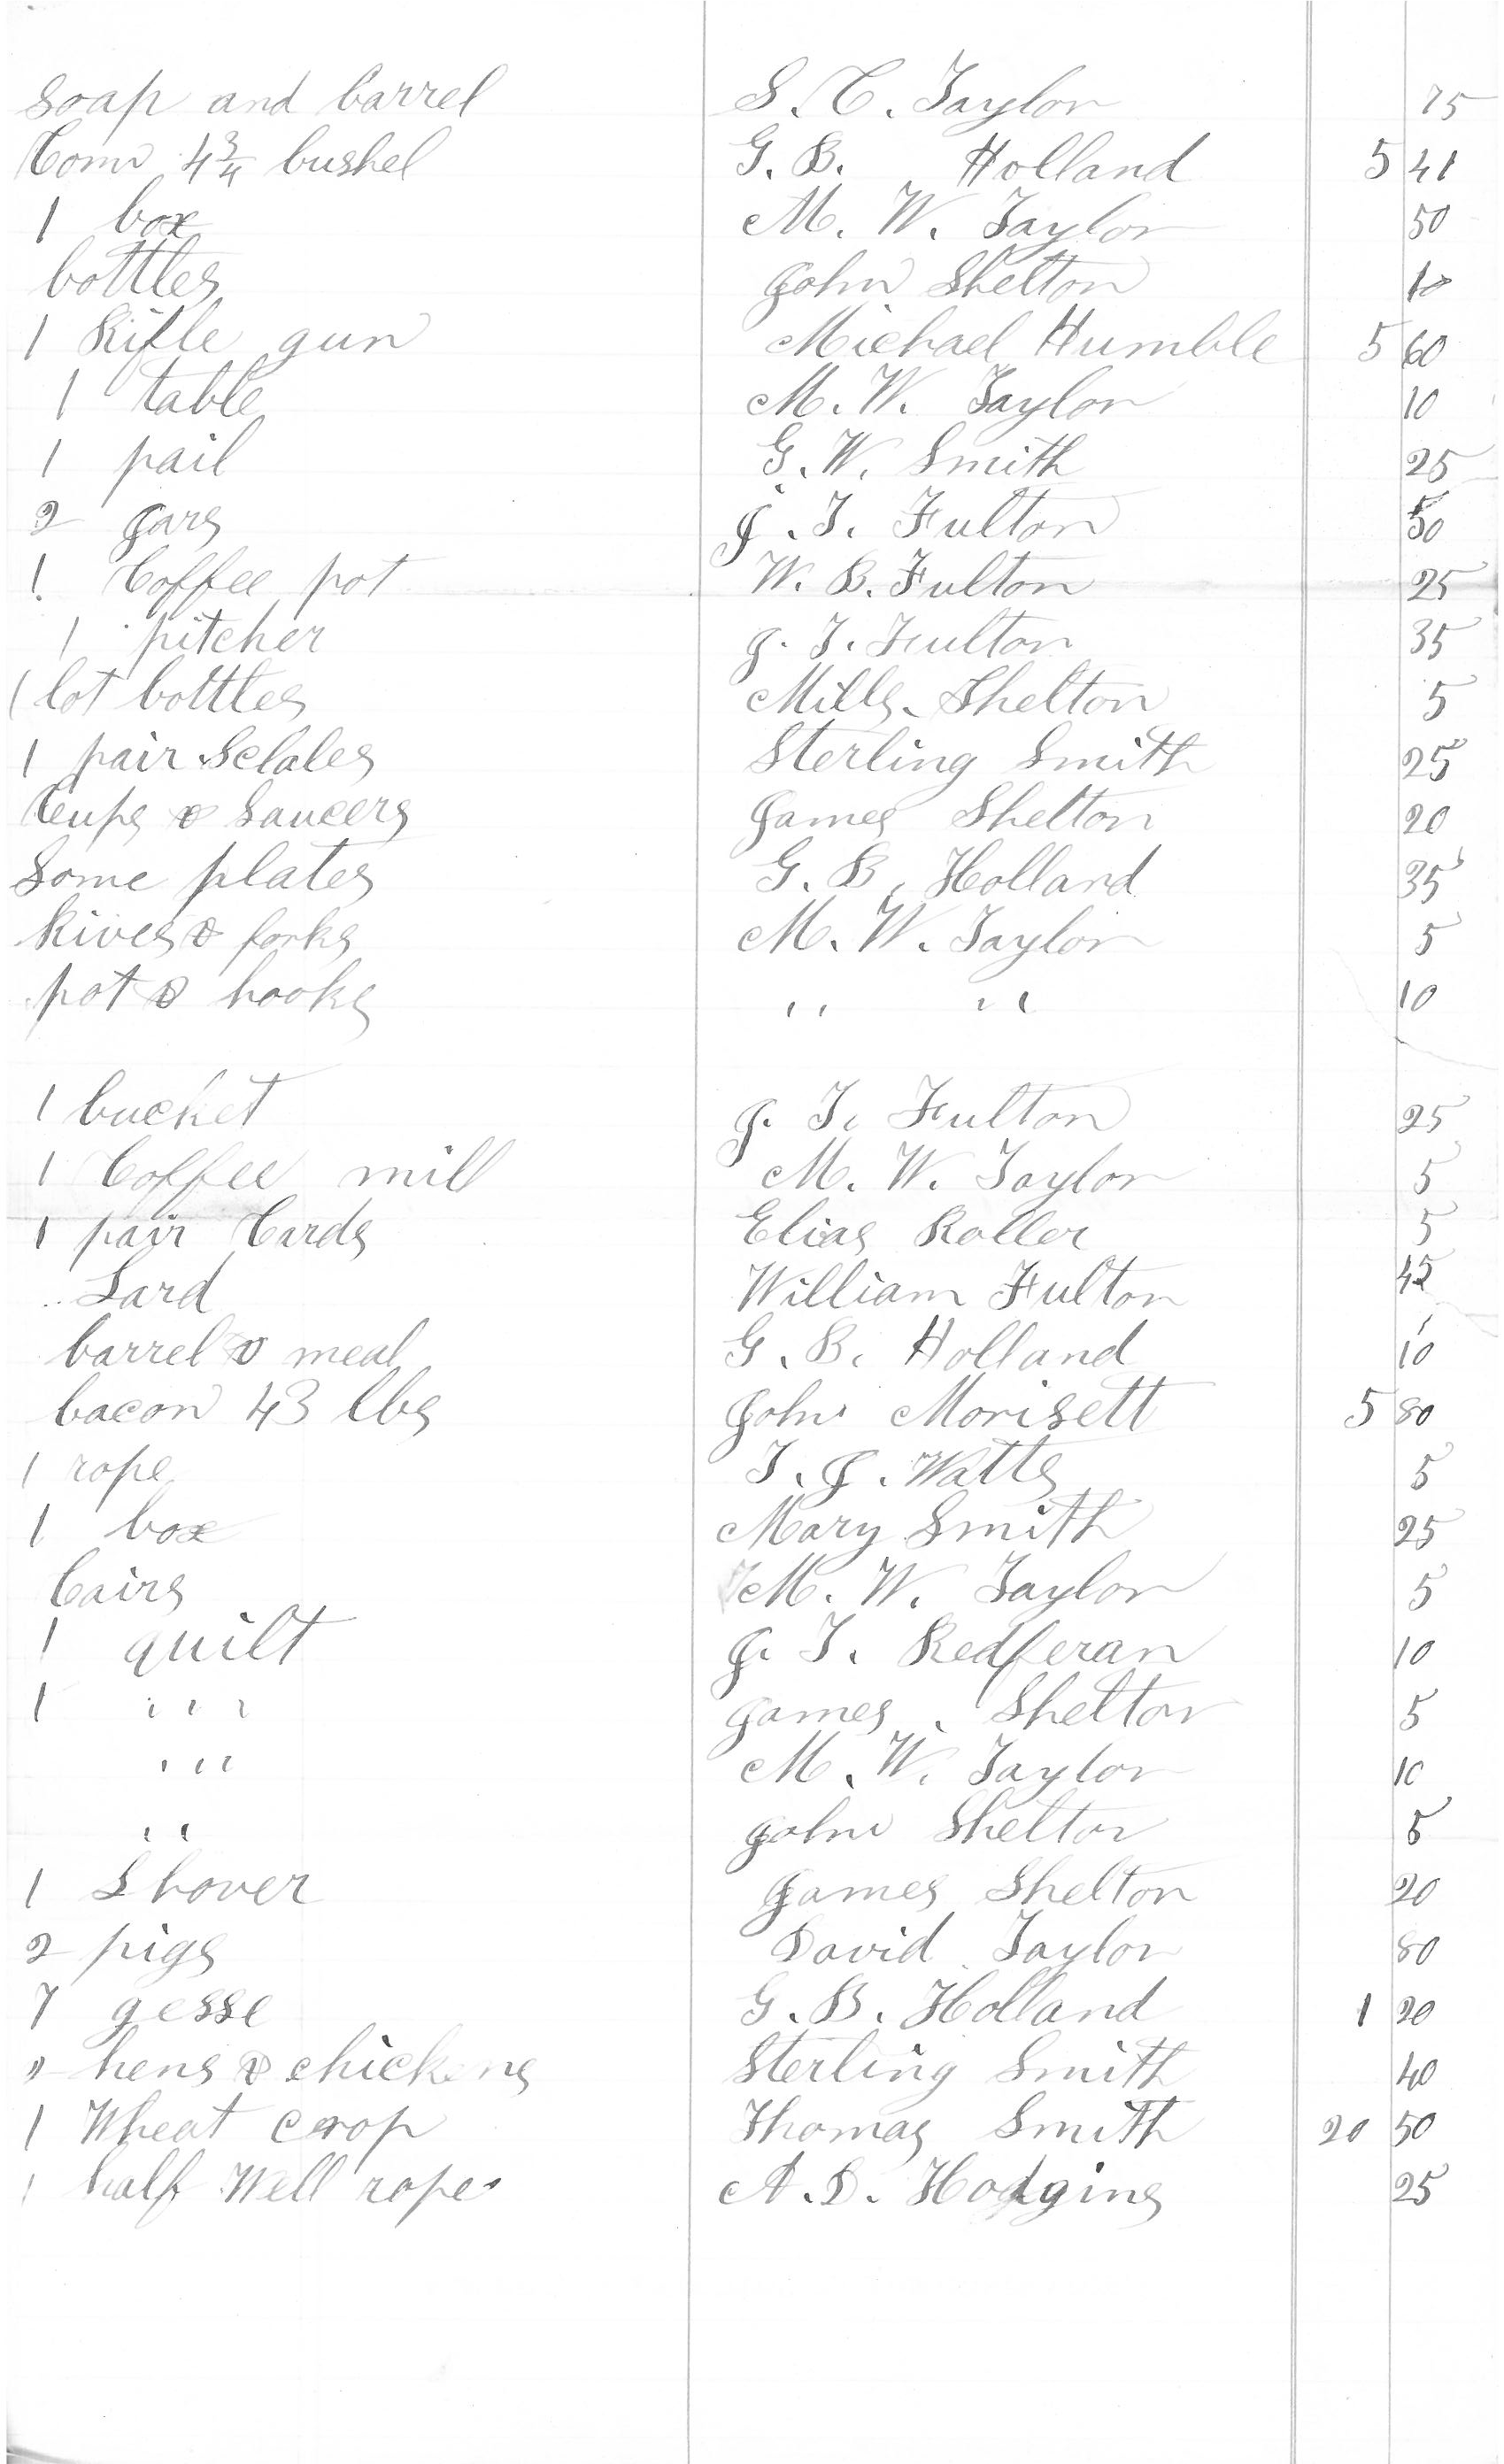 Soap and barrel S. C. Taylor 75
Corn 4 3/4 bushel G. B. Holland 5 41
1 box M. W. Taylor 50
bottles John Shelton 10
1 Rifle gun Michael Humble 5 60
1 table M. W. Taylor 10
1 pail G. W. Smith 25
2 Jars J. T. Fulton 50
1 Coffee pot W. B. Fulton 25
1 pitcher J. T. Fulton 35
1 lot bottles Mills Shelton 5
1 pair Sclales Sterling Smith 25
Cups & Saucers James Shelton 20
Some plates G. B. Holland 35
Kives & forks M. W. Taylor 5
pot & hooks " " 10
1 bucket J. T. Fulton 25
1 Coffee mill M. W. Taylor 5
1 pair Cards Elias Roller 5
Lard William Fulton 45
barrel & meal G. B. Holland 10
bacon 43 lbs John Morisett 5 80
1 rope T. J. Watts 5
1 box Mary Smith 25
Cairs M. W. Taylor 5
1 quilt J. T. Redferan 10
1 " James Shelton 5
" M. W. Taylor 10
" John Shelton 5
1 Shover James Shelton 20
2 pigs David Taylor 80
7 gesse G. B. Holland 1 20
" hens & chickens Sterling Smith 40
1 Wheat crop Thomas Smith 20 50
1 half Well rope A. D. Hodgins 25